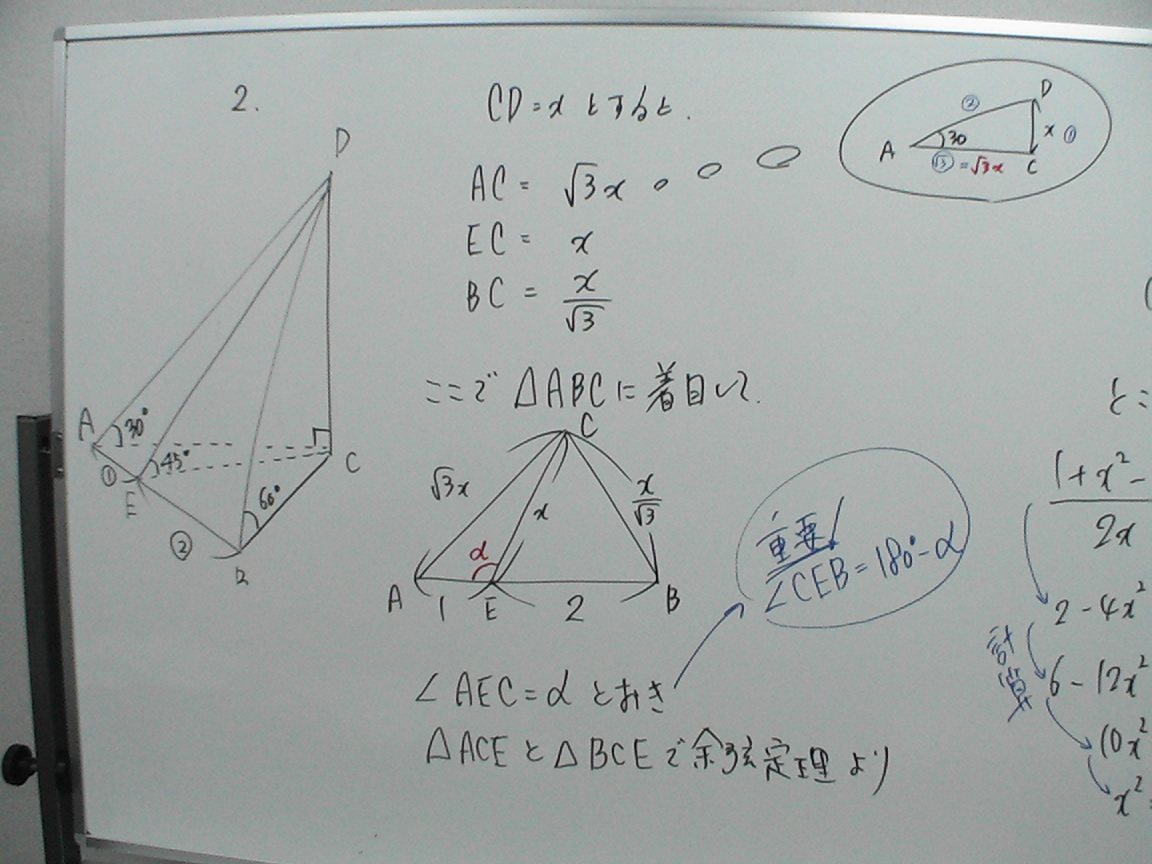 2.
D
A
30°
①
E
45°
②
60°
B
C
CD=x とすると.
AC= √3x
EC= x
BC = x/√3
D
②
A
30
x ①
√3 = √3x
C
ここで △ABCに着目して.
C
√3x
x
x/√3
α
A
1
E
2
B
重要!
∠CEB=180°-α
∠AEC=α とおき
△ACEと△BCEで余弦定理より
と:
1+x²-
2x
2-4x²
計算
6-12x²
10x²
x²